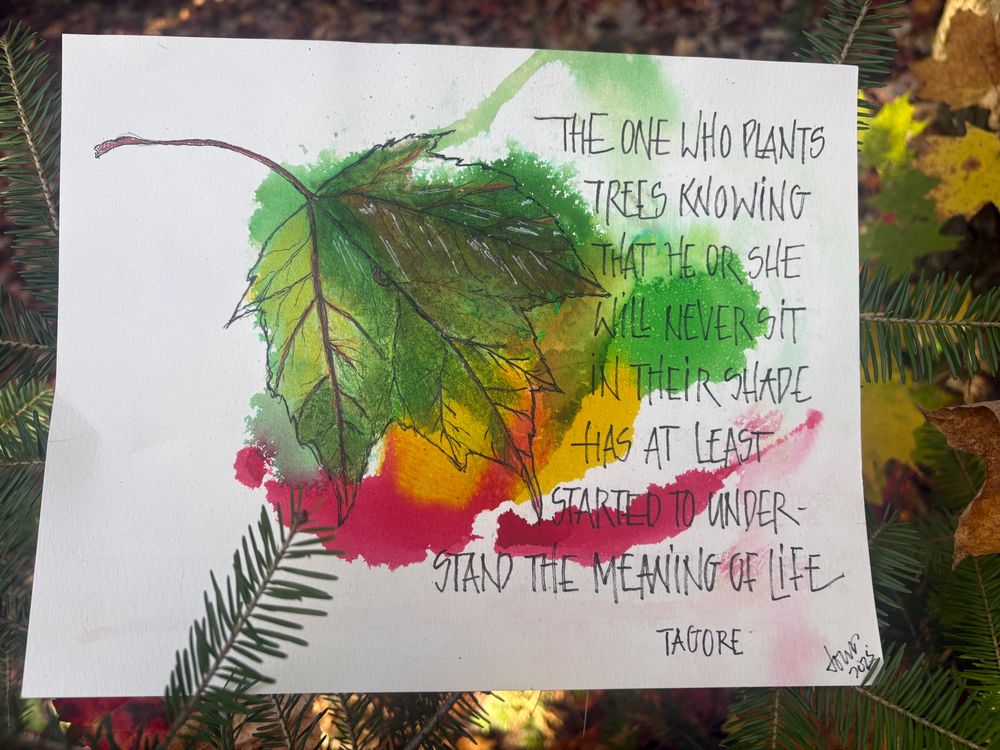 THE ONE WHO PLANTS
TREES KNOWING
THAT HE OR SHE
WILL NEVER SIT
IN THEIR SHADE
HAS AT LEAST
STARTED TO UNDER-
STAND THE MEANING OF LIFE
TAGORE
2023